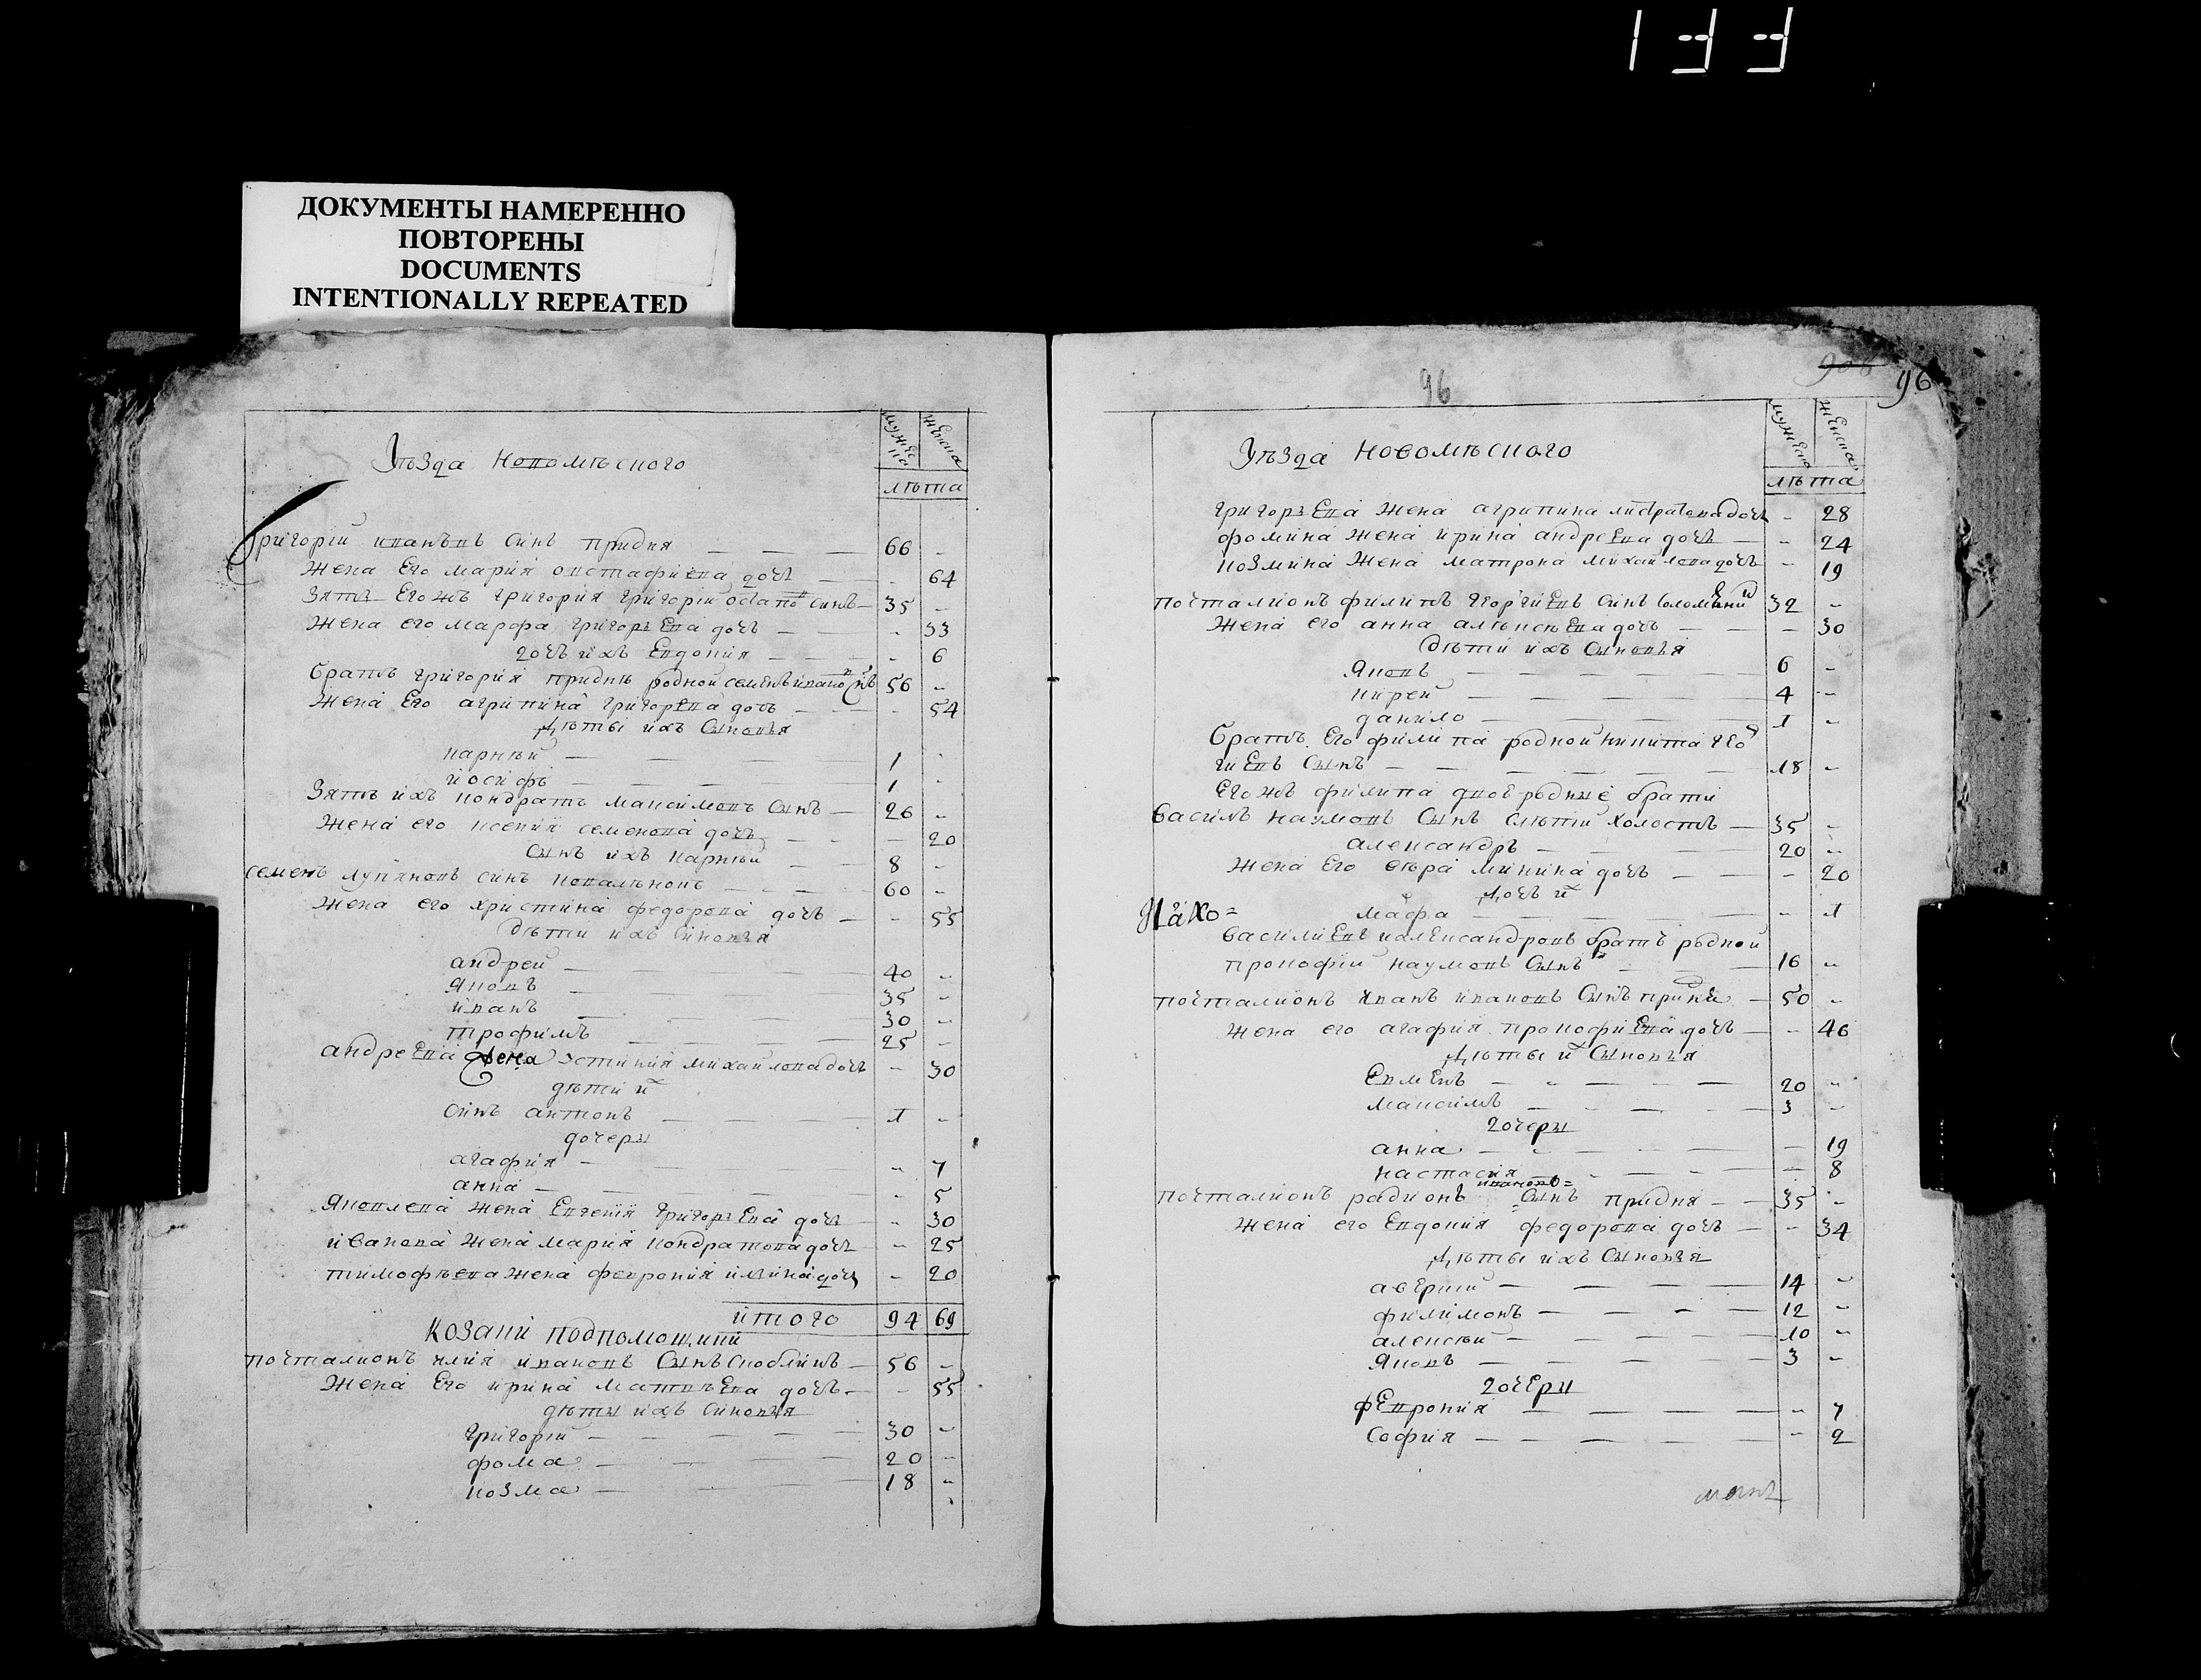 133
ДОКУМЕНТЫ НАМЕРЕННО
ПОВТОРЕНЫ
DOCUMENTS
INTENTIONALLY REPEATED
Уѣзда Новомѣского
мужеско
женска
лѣта
Григорій ивановъ синъ придня — — — 66 -
Жена Его мария остафиева дочь — - 64
Зять Егожъ григория григорій остапо синъ — 35 -
Жена его марфа григорьева дочь — - 33
дочь ихъ Евдокия — - 6
братъ григория придні родной семенъ ивановъ синъ 56 -
Жена Его агрипина григорева дочь — - 54
Дѣты ихъ Сыновья
карнѣй — — 1 -
иосифъ — — 1 -
Зять ихъ кондратъ максимовъ Сынъ — 26 -
Жена его ксения семенова дочь — 20
Сынъ ихъ карнѣй 8 -
семенъ лукяновъ синъ ковалѣнокъ — 60 -
Жена его христина федорова дочь — - 55
Дѣти ихъ Синовья
андрей — 40 -
Яковъ — 35 -
иванъ — 30 -
трофимъ — 25 -
андреева Жена Устиния михайлова дочь - 30
дѣти их
синъ антонъ — 1 -
дочеры
агафия — - 7
анна — - 5
Яковлева Жена Евгения григорьева дочь - 30
иванова Жена мария кондратова дочь - 25
тимофѣева жена феврония илина дочь - 20
итого 94 69
Козаки подпомощики
почталионъ илия ивановъ Сынъ скоблікъ — 56 -
Жена Его ирина матвѣева дочь — - 55
дѣты ихъ синовья
григорій — 30 -
фома — 20 -
козма — 18 -
96
96
Уѣзда Новомѣского
мужеска
женска
лѣта
григорьева Жена агрипина дочь - 28
фомина Жена ирина андреева дочь — - 24
козмина Жена матрона михайлова дочь - 19
почталионъ филипъ георгиевъ синъ 32 -
Жена его анна алѣксѣева дочь — - 30
дѣти ихъ Сыновья
Яковъ — 6 -
кирей — 4 -
данило — 1 -
братъ Его филипа родной никита гео
гиевъ Сынъ — 18 -
Егожъ филипа двоѣродные брати
василь наумовъ Сынъ слѣпій холостъ — 35 -
александръ — 20 -
Жена Его вѣра минина дочь — - 20
Дочь их
мафа — - 1
василиевъ иалександровъ братъ родной
прокофій наумовъ Сынъ — 16 -
почталионъ иванъ ивановъ Сынъ придня — 50 -
Жена его агафия прокофиева дочь — - 46
Дѣты их Сыновья
Евменъ — 20 -
максимъ — 3 -
дочеры
анна — - 19
настасия — - 8
ивановъ =
почталионъ радионъ Сынъ придня — 35 -
Жена его Евдокия федорова дочь — - 34
Дѣты ихъ Сыновья
аверкій — 14 -
филимонъ — 12 -
алексѣй — 10 -
Яковъ — 3 -
дочеры
феврония — - 7
София — - 2